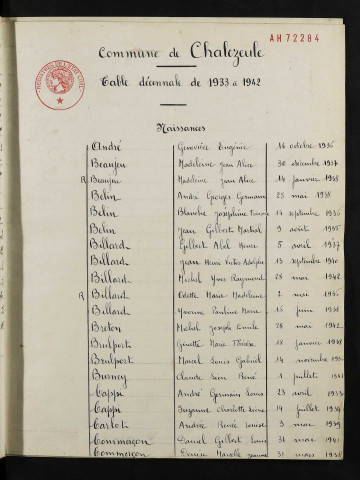 AH72284
Commune de Chalezeule
Table décennale de 1933 à 1942
Naissances
André Geneviève Eugénie 16 octobre 1936
Beaujeu Madeleine Jean Alice 30 décembre 1937
R Beaujeu Madeleine Jean Alice 14 janvier 1938
Belin André Georges Germain 25 mai 1938
Belin Blanche Joséphine 14 septembre 1936
Belin Jean Gilbert Martial 9 août 1935
Billard Gilbert Abel Henri 5 avril 1937
Billard Jean Henri Victor Adolphe 13 septembre 1940
Billard Michel Yves Raymond 28 mai 1942
R Billard Odette Marie Madeleine 2 mai
Billard Yvonne Pauline Marie 16 juin
Breton Michel Joseph Emile 28 mai 1942
Brulport Ginette Marie Thérèse 18 janvier 1938
Brulport Marcel Louis Gabriel 14 novembre
Burney Claude René 1 juillet
Cappe André Germain Louis 23 avril 1933
Cappe Suzanne Charlotte 14 juillet 1934
Carlot Andrée Renée Louise 3 mai 1939
Commaçon Daniel Gilbert Louis 31 mai 1941
Commerçon Denise Marcelle Jeanne 31 mars 1938